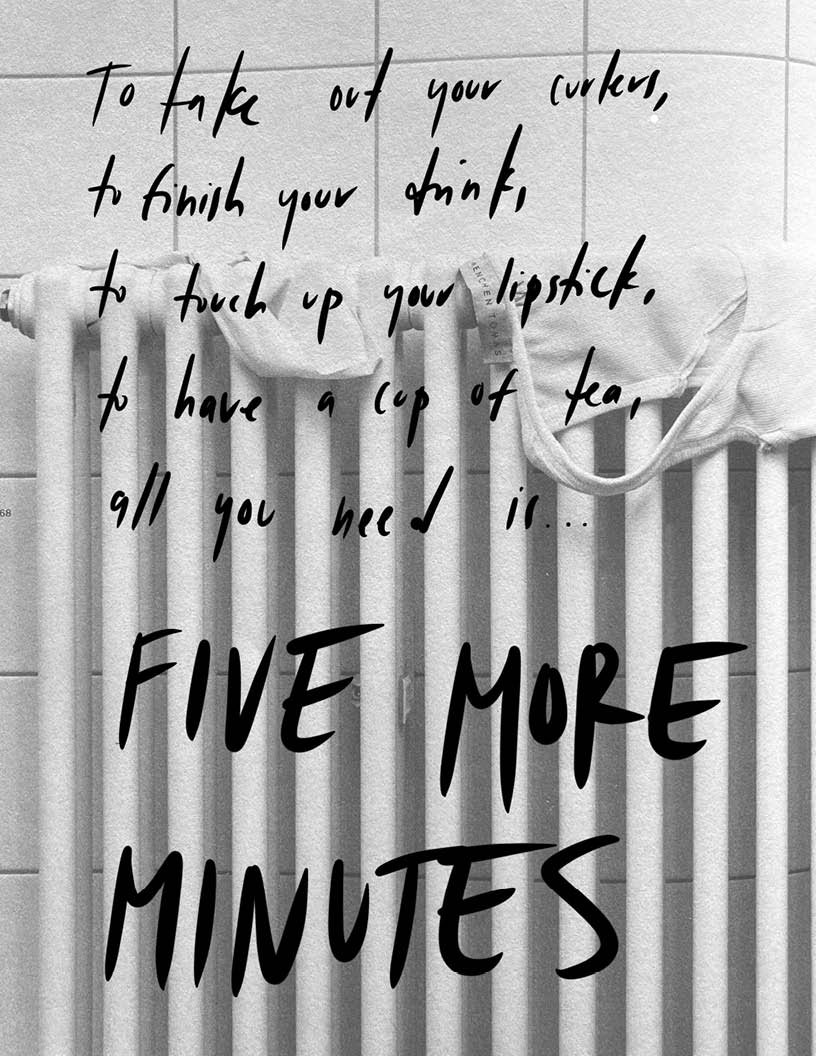 To take out your curlers,
to finish your drink,
to touch up your lipstick,
MENCHEN TOMAS
to have a cup of tea,
all you need is...
68
FIVE MORE
MINUTES